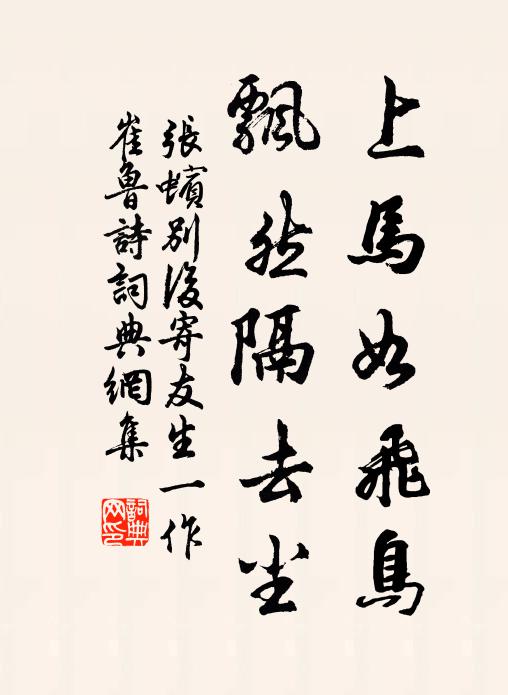 上馬如飛鳥
飄然隔去尘
張蠙別後寄友生一作
崔魯詩詞典網集
詞典网印